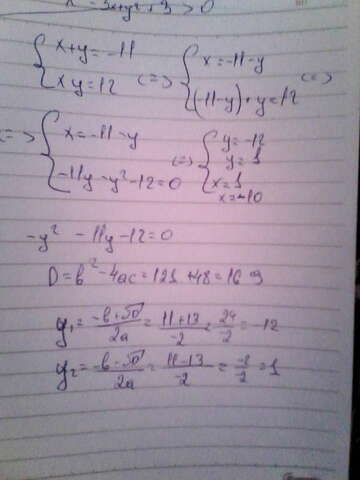 x² - 3x + y² + 3 > 0
{ x + y = -11
xy = 12 <=> { x = -11 - y
(-11 - y) · y = 12 <=>
<=> { x = -11 - y
-11y - y² - 12 = 0 <=> { y = -12
y = 1
x = 1
x = -10
-y² - 11y - 12 = 0
D = b² - 4ac = 121 + 48 = 169
y₁ = (-b + √D)/2a = (11 + 13)/-2 = 24/-2 = -12
y₂ = (-b - √D)/2a = (11 - 13)/-2 = -2/-2 = 1